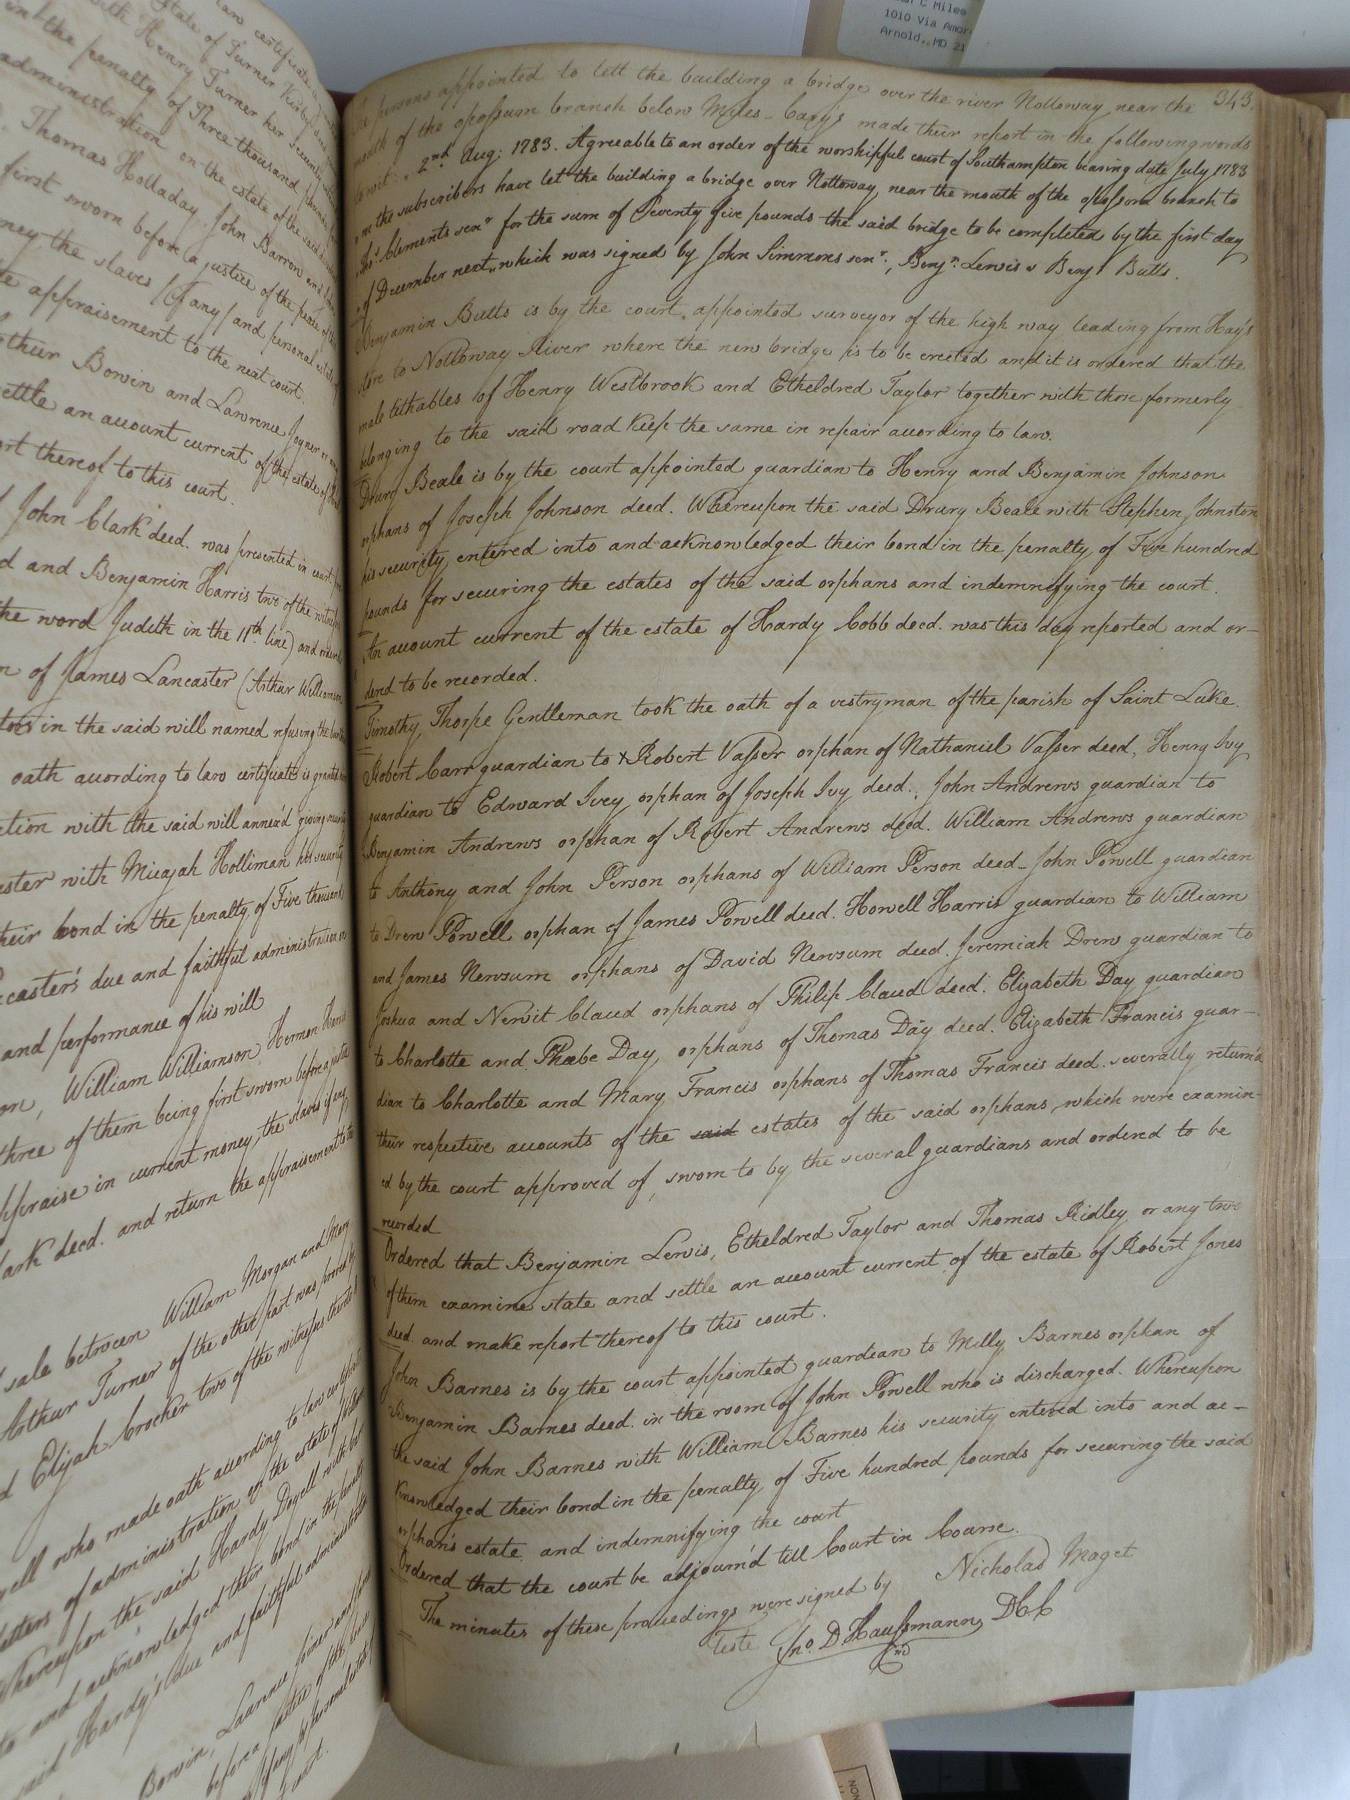 law certificate
State of Turner Kirby
with Henry Turner her security
in the penalty of Three thousand
administration on the estate of the said
Thomas Holladay, John Barrow and
first sworn before a justice of the peace
ney the slaves (if any) and personal estate
appraisement to the next court.
thur Bowin and Lawrence Joyner
ettle an account current of the estate of
ort thereof to this court.
John Clark deed. was presented in court
d and Benjamin Harris two of the
the word Judith in the 11th line) and
n of James Lancaster (Arthur Williamson
in the said will named refusing the
oath according to law certificate is granted
ction with the said will annex'd giving
aster with Micajah Holliman his security
their bond in the penalty of Five thousand
caster's due and faithful administration
and performance of his will
on, William Williamson, Hermon Harris
three of them being first sworn before a justice
appraise in current money the slaves if any
lark deed. and return the appraisement to the
sale between William Morgan and Mary
Arthur Turner of the other part was proved by
d Elijah Crocker two of the witnesses
yell who made oath according to law certificate
letters of administration on the estate of
whereupon the said Hardy Doyell with
to and acknowledged their bond in the penalty
said Hardy's due and faithful administration
Bowin, Laurence Joiner
before a justice of the
personal
court.
C Miles
1010 Via Amor
Arnold, MD 21
343.
The persons appointed to lett the building a bridge over the river Nottoway near the
mouth of the opossum branch below Myles-Cary's made their report in the following words
towit: 2nd Aug: 1783. Agreeable to an order of the worshipful court of Southampton bearing date July 1783
the subscribers have let the building a bridge over Nottoway near the mouth of the opossum branch to
Clements senr for the sum of Seventy five pounds the said bridge to be completed by the first day
of December next, which was signed by John Simmons senr., Benjn. Lewis & Benj: Butts.
Benjamin Butts is by the court appointed surveyor of the high way leading from Hay's
store to Nottoway River where the new bridge is to be erected and it is ordered that the
male tithables of Henry Westbrook and Etheldred Taylor together with those formerly
belonging to the said road keep the same in repair according to law.
Drury Beale is by the court appointed guardian to Henry and Benjamin Johnson
orphans of Joseph Johnson deed. Whereupon the said Drury Beale with Stephen Johnston
his security entered into and acknowledged their bond in the penalty of Five hundred
pounds for securing the estates of the said orphans and indemnifying the court.
An account current of the estate of Hardy Cobb deed. was this day reported and or-
derd to be recorded.
Timothy Thorpe Gentleman took the oath of a vestryman of the parish of Saint Luke.
Robert Carr guardian to Robert Vasser orphan of Nathaniel Vasser deed, Henry Ivy
guardian to Edward Ivey orphan of Joseph Ivy deed., John Andrews guardian to
Benjamin Andrews orphan of Robert Andrews deed. William Andrews guardian
to Anthony and John Person orphans of William Person deed - John Powell guardian
to Drew Powell orphan of James Powell deed. Howell Harris guardian to William
and James Newsum orphans of David Newsum deed. Jeremiah Drew guardian to
Joshua and Newit Claud orphans of Philip Claud deed. Elizabeth Day guardian
to Charlotte and Phœbe Day, orphans of Thomas Day deed. Elizabeth Francis guar-
dian to Charlotte and Mary Francis orphans of Thomas Francis deed. severally return'd
their respective accounts of the said estates of the said orphans, which were examin-
ed by the court approved of, sworn to by the several guardians and ordered to be
recorded
Ordered that Benjamin Lewis, Etheldred Taylor and Thomas Ridley or any two
of them examine state and settle an account current of the estate of Robert Jones
deed. and make report thereof to this court.
John Barnes is by the court appointed guardian to Milly Barnes orphan of
Benjamin Barnes deed. in the room of John Powell who is discharged. Whereupon
the said John Barnes with William Barnes his security entered into and ac-
knowledged their bond in the penalty of Five hundred pounds for securing the said
orphan's estate and indemnifying the court
Ordered that the court be adjourn'd till Court in Course.
The minutes of these proceedings were signed by Nicholas Maget
Teste Jno. D Haussmann DCC